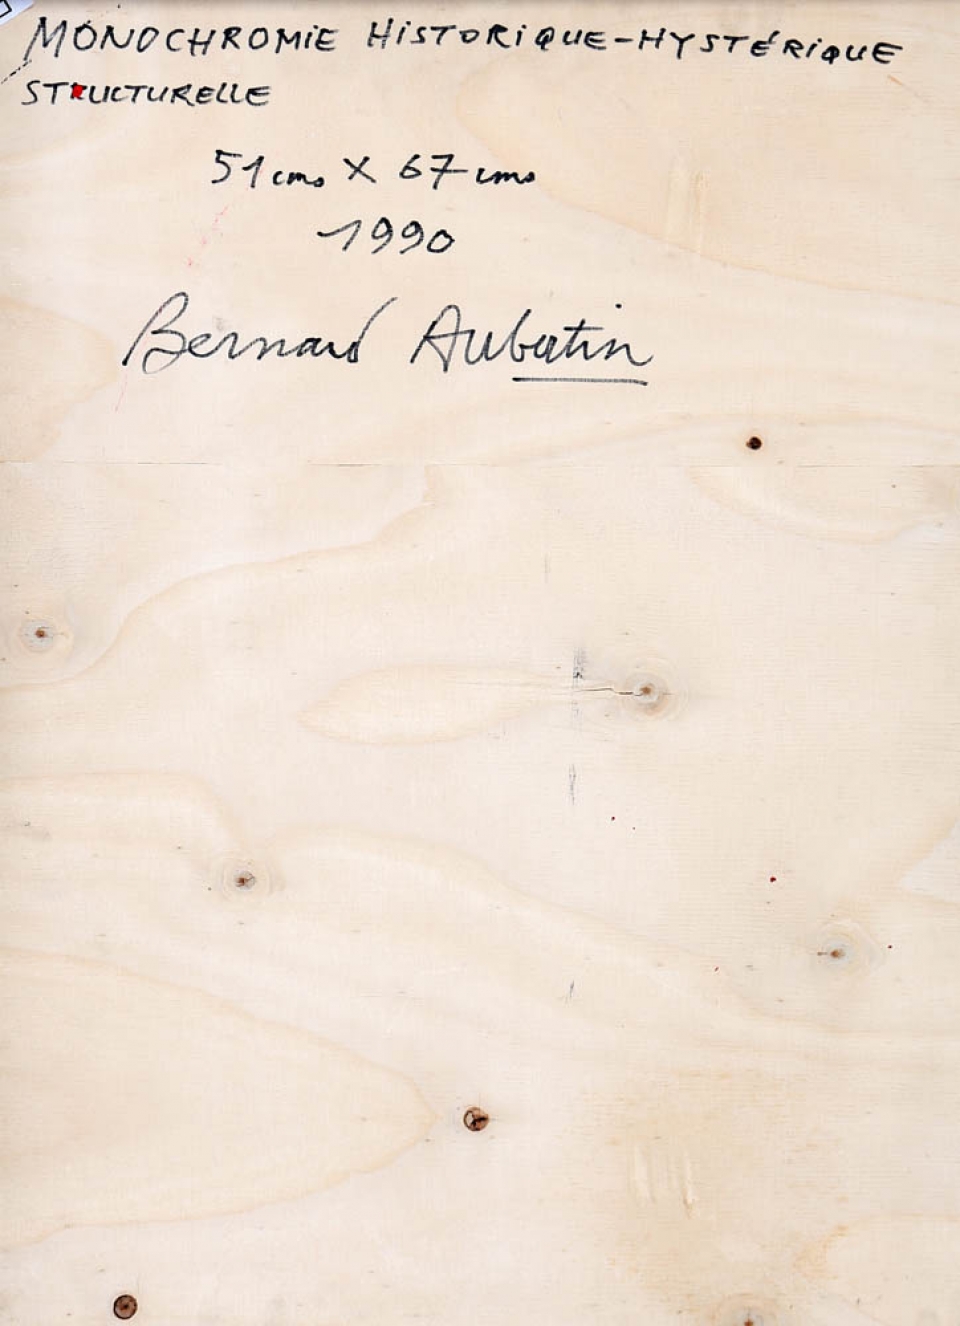 MONOCHROMIE HISTORIQUE-HYSTÉRIQUE
STRUCTURELLE
51 cms X 67 cms
1990
Bernard Aubertin